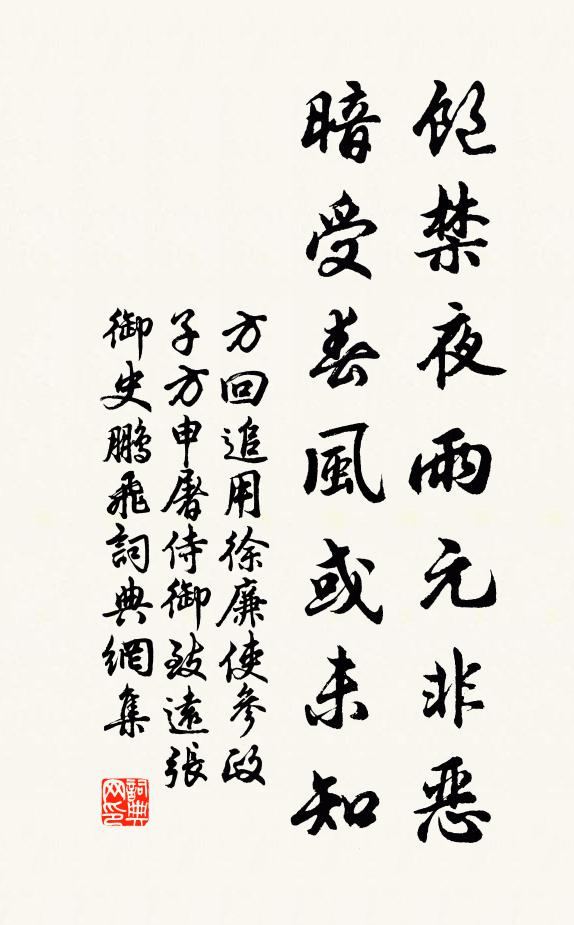 飽禁夜雨元非惡
暗受春風或未知
方回追用徐廉使參政
子方申屠侍御致遠張
御史鵬飛詞典網集
詞典網印